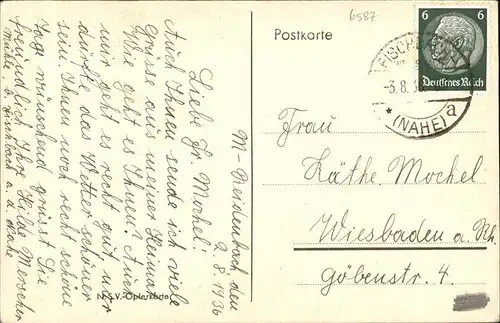 6587
Postkarte
6 6
Deutsches Reich
FISCH
3.8.3
* (NAHE) a
Frau
Käthe Mochel
Wiesbaden a. Rh.
Göbenstr. 4.
M- Reidenbach, den
2.8.1936
Liebe Fr. Mochel!
Auch Ihnen sende ich viele
Grüsse aus meiner Heimat
Wie geht es Ihnen? Auch
mir geht es recht gut nur
dürfte das Wetter schöner
sein. Ihnen noch recht schöne
Tage wünschend grüsst Sie
freundlich Ihre Hilde Merscher
Fischbach a. d. Nahe
N.S.V.-Opferkarte